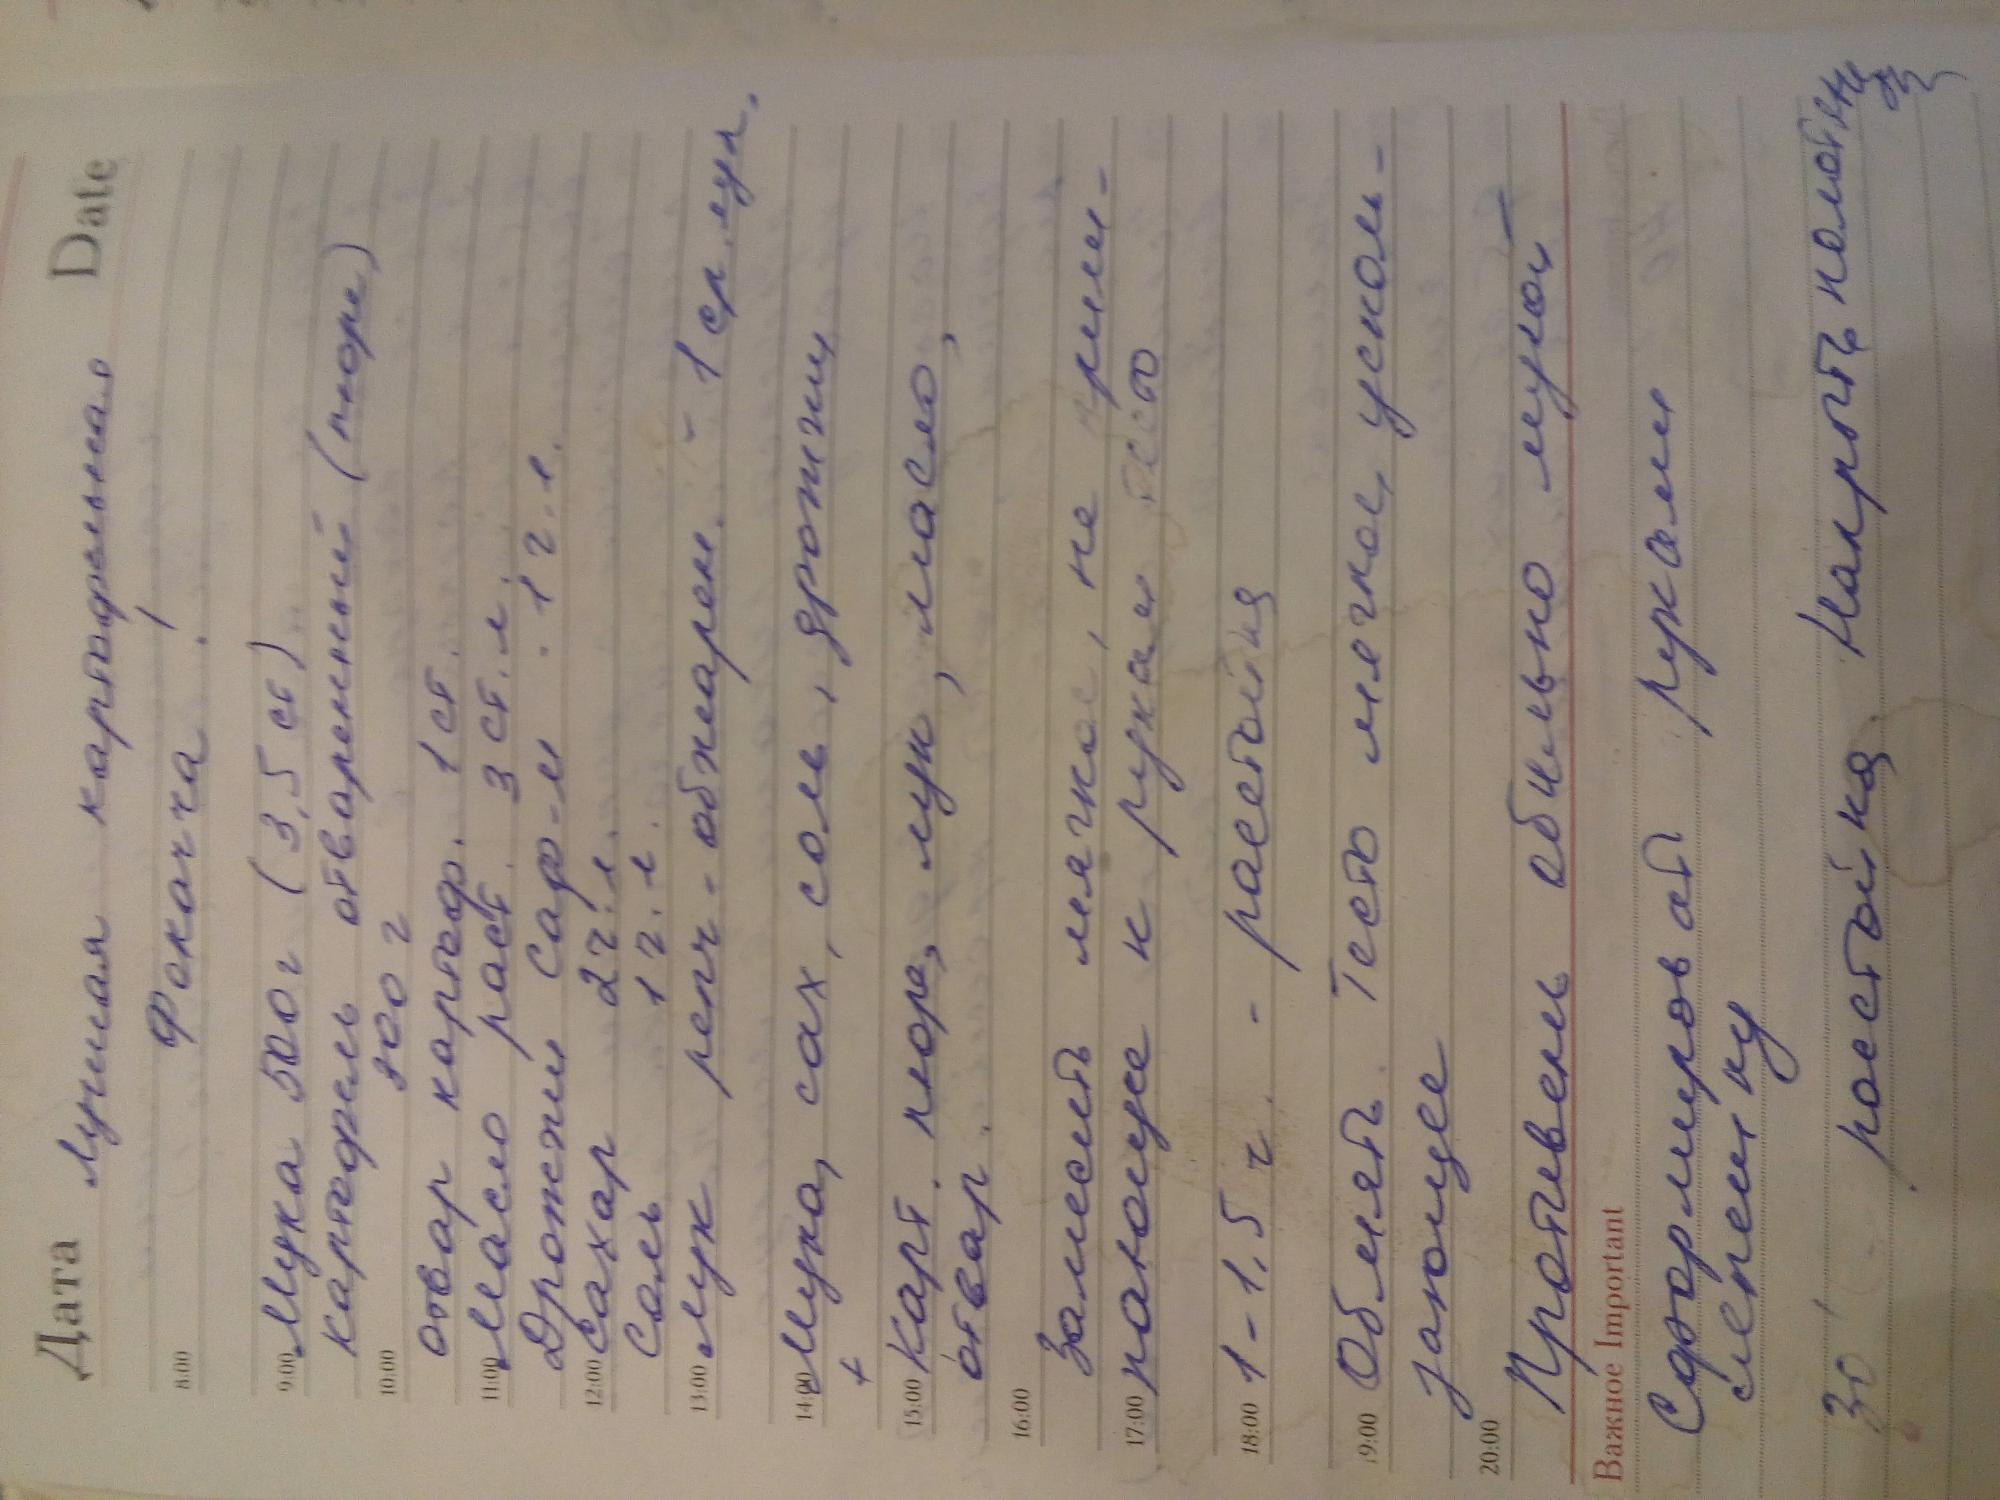 Дата Date
Лучшая картофельная
Фокачча!
8:00
9:00 Мука 500 г (3,5 ст)
картофель отваренный (пюре)
10:00 300 г
отвар картоф. 1 ст.
11:00 Масло раст. 3 ст. л.
Дрожжи саф-м . 1 ч. л.
12:00 Сахар 2 ч. л.
Соль 1 ч. л.
13:00 Лук репч - обжарен. - 1 ср. лук.
14:00 Мука, сах, соль, дрожжи,
+
15:00 карт. пюре, лук, масло,
отвар.
16:00
Замесить мягкое, не рили-
17:00 пающее к рукам тесто
18:00 1-1,5 ч. - расстойка
19:00 Обмять. Тесто мягкое,усколь-
зающее
20:00
Противень обильно мукой
Важное Important
Сформировать руками
лепешку
30' расстойка Накрыть